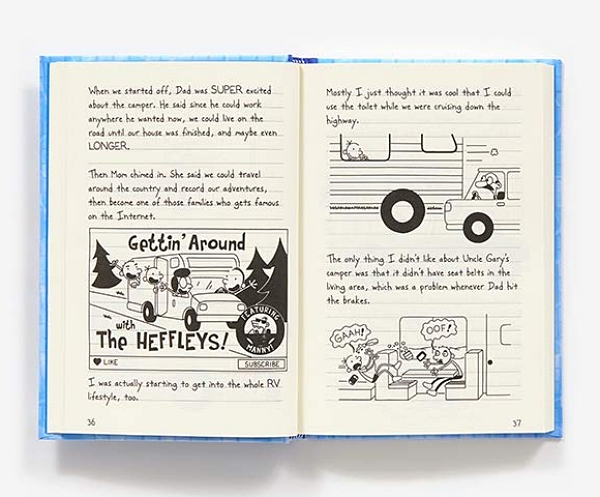 When we started off, Dad was SUPER excited
about the camper. He said since he could work
anywhere he wanted now, we could live on the
road until our house was finished, and maybe even
LONGER.
Then Mom chimed in. She said we could travel
around the country and record our adventures,
then become one of those families who gets famous
on the Internet.
Gettin' Around
with
The HEFFLEYS!
FEATURING
MANNY!
LIKE
SUBSCRIBE
I was actually starting to get into the whole RV
lifestyle, too.
36
Mostly I just thought it was cool that I could
use the toilet while we were cruising down the
highway.
The only thing I didn't like about Uncle Gary's
camper was that it didn't have seat belts in the
living area, which was a problem whenever Dad hit
the brakes.
GAAH!
OOF!
37